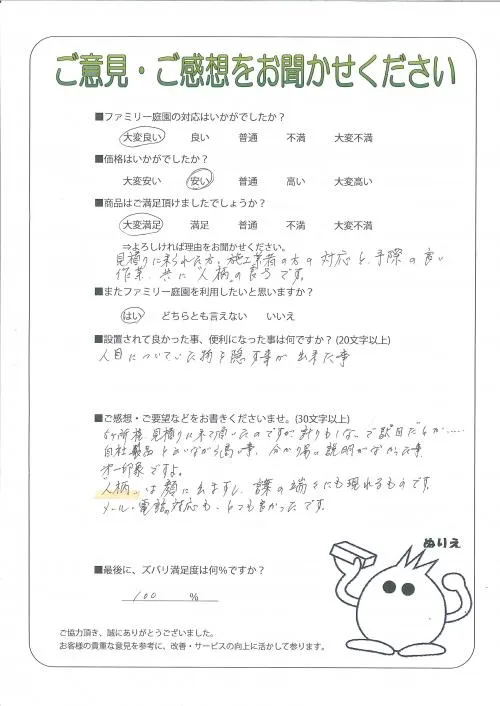 ご意見・ご感想をお聞かせください
■ファミリー庭園の対応はいかがでしたか?
大変良い 良い 普通 不満 大変不満
■価格はいかがでしたか?
大変安い 安い 普通 高い 大変高い
■商品はご満足頂けましたでしょうか?
大変満足 満足 普通 不満 大変不満
⇒よろしければ理由をお聞かせください。
見積りに来られた方、施工業者の方の対応と、手際の良い
作業、共に"人柄"の良さです。
■またファミリー庭園を利用したいと思いますか?
はい どちらとも言えない いいえ
■設置されて良かった事、便利になった事は何ですか?(20文字以上)
人目についていた物を隠す事が出来た事
■ご感想・ご要望などをお書きくださいませ。(30文字以上)
5ヶ所程見積りに来て頂いたのですが、計りもしないで"駄目だ"とか……
自社製品と言いながら高い事、分かり易い説明がなかった事
オー印象ですよ。
"人柄"は顔に出ますし、言葉の端々にも現れるものです。
メール・電話の対応も、とても良かったです。
ぬりえ
■最後に、ズバリ満足度は何%ですか?
100 %
ご協力頂き、誠にありがとうございました。
お客様の貴重な意見を参考に、改善・サービスの向上に活かして参ります。